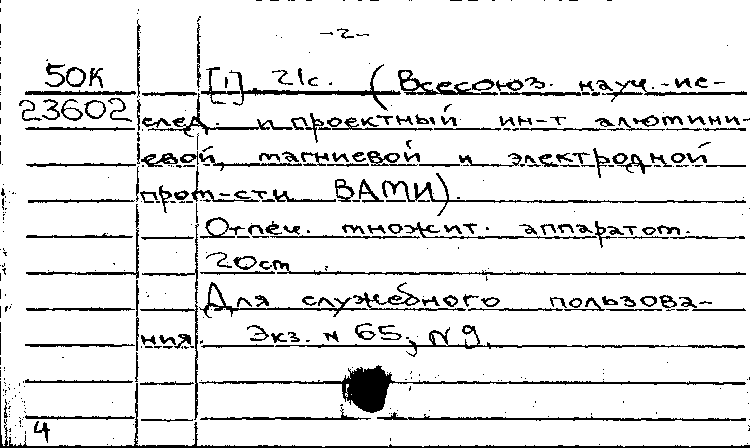 -2-
50К [1], 21с. (Всесоюз. науч.-ис-
23602 след. и проектный ин-т алюмини-
евой, магниевой и электродной
пром-сти ВАМИ).
Отпеч. множит. аппаратом.
20см
Для служебного пользова-
ния. Экз. N 65, N 9.
4